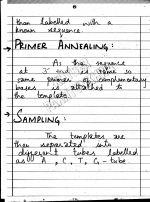 than labelled with a
known sequence.
→ PRIMER ANNEALING :
As the sequence
at 3' end is same so
same primer of complimentary
bases is attached to
the template.
→ SAMPLING :
The templates are
then separated into
different tubes labelled
as A, C, T, G - tube